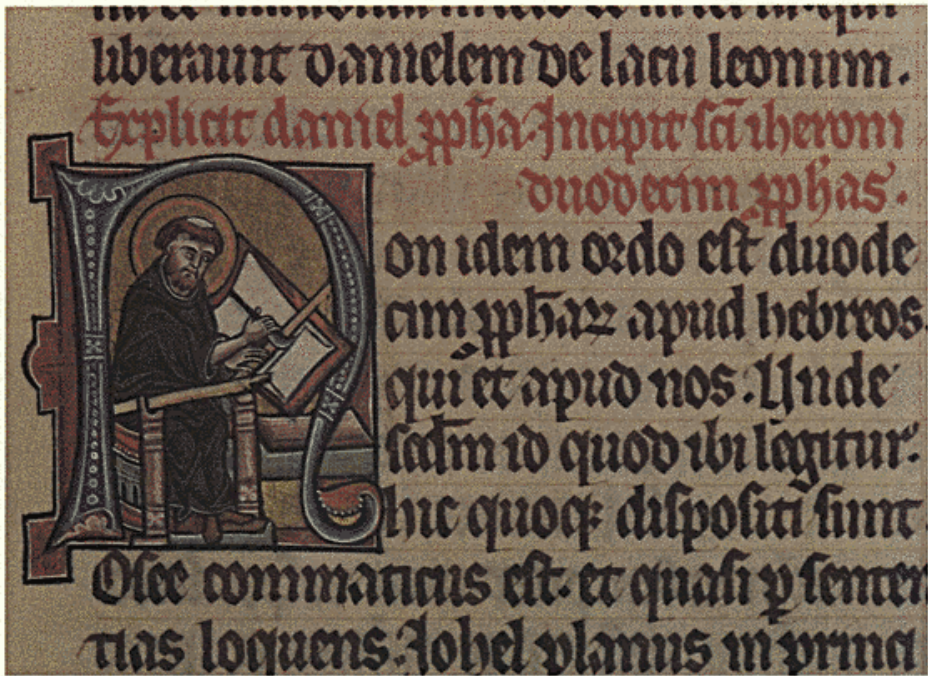 liberauit danielem de lacu leonum.
Explicit daniel ꝓpha. Incipit sci iheroni
duodecim ꝓphas.
Non idem ordo est duode
cim ꝓphaꝝ apud hebreos
qui et apud nos. Unde
scdm id quod ibi legitur.
hic quoqꝫ dispositi sunt
Osee commaticus est. et quasi ꝑ senten
tias loquens. Johel planus in princi